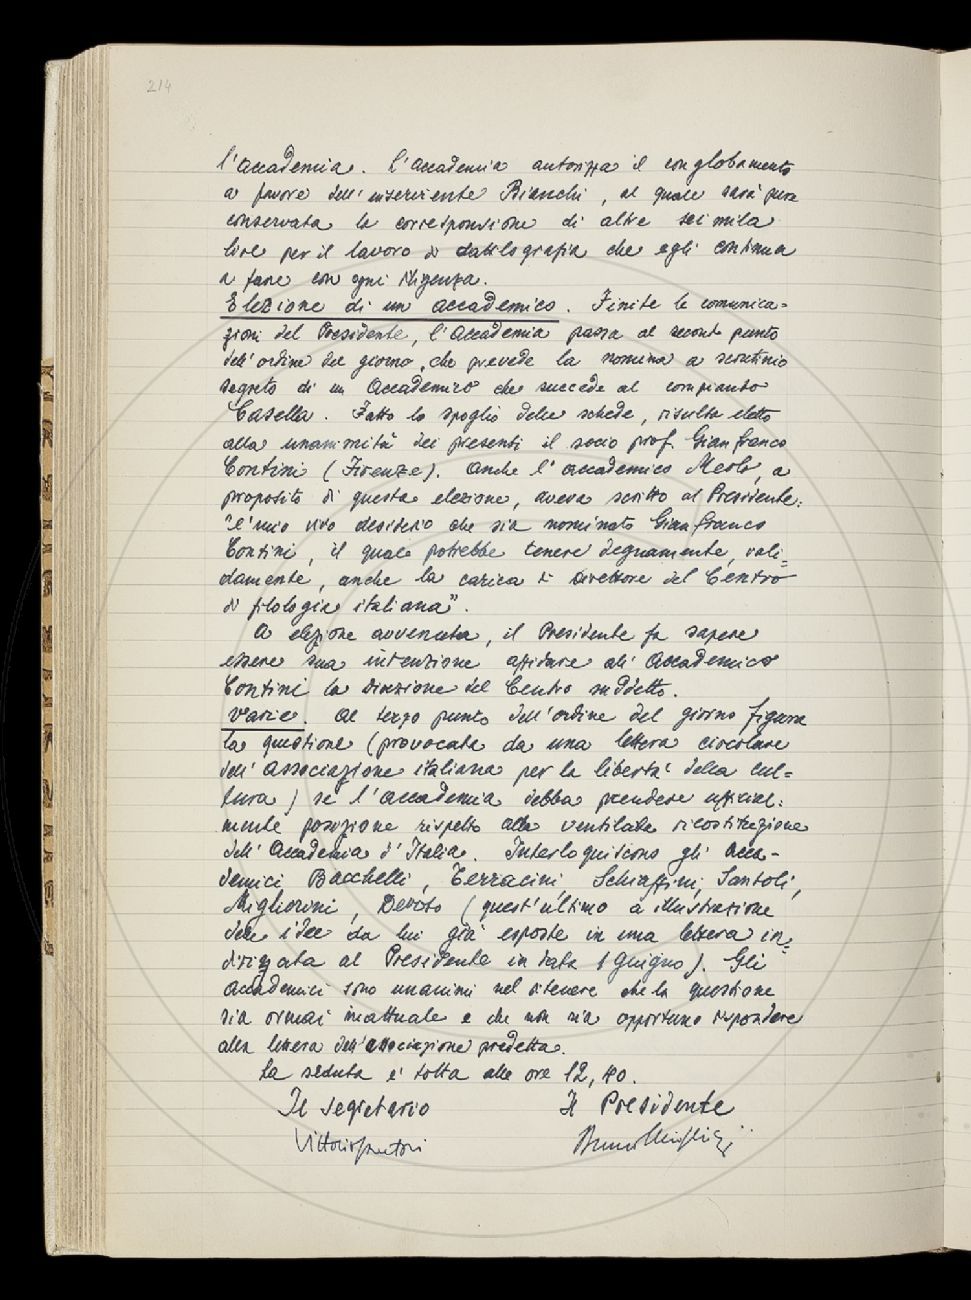 214
l'Accademia. L'Accademia autorizza il conglobamento
a favore dell'inserviente Bianchi, al quale sarà pure
conservata la corresponsione di altre seimila
lire per il lavoro di dattilografia che egli continua
a fare con ogni diligenza.
Elezione di un accademico. Finite le comunica=
zioni del Presidente, l'Accademia passa al secondo punto
dell'ordine del giorno, che prevede la nomina a scrutinio
segreto di un Accademico che succede al compianto
Casella. Fatto lo spoglio delle schede, risulta eletto
alla unanimità dei presenti il socio prof. Gianfranco
Contini (Firenze). Anche l'accademico Merlo, a
proposito di questa elezione, aveva scritto al Presidente:
"è mio vivo desiderio che sia nominato Gianfranco
Contini, il quale potrebbe tenere degnamente, vali=
damente, anche la carica di Direttore del Centro
di filologia italiana".
A elezione avvenuta, il Presidente fa sapere
essere sua intenzione affidare all'Accademico
Contini la Direzione del Centro suddetto.
Varie. Al terzo punto dell'ordine del giorno figura
la questione (provocata da una lettera circolare
dell'Associazione italiana per la libertà della cul=
tura) se l'Accademia debba prendere ufficial=
mente posizione rispetto alla ventilata ricostituzione
dell'Accademia d'Italia. Interloquiscono gli Acca-
demici Bacchelli, Terracini, Schiaffini, Santoli,
Migliorini, Devoto (quest'ultimo a illustrazione
delle idee da lui già esposte in una lettera in=
dirizzata al Presidente in data 1 giugno). Gli
Accademici sono unanimi nel ritenere che la questione
sia ormai inattuale e che non sia opportuno rispondere
alla lettera dell'associazione predetta.
La seduta è tolta alle ore 12,40.
Il Segretario Il Presidente
Vittorio Santoli Bruno Migliorini